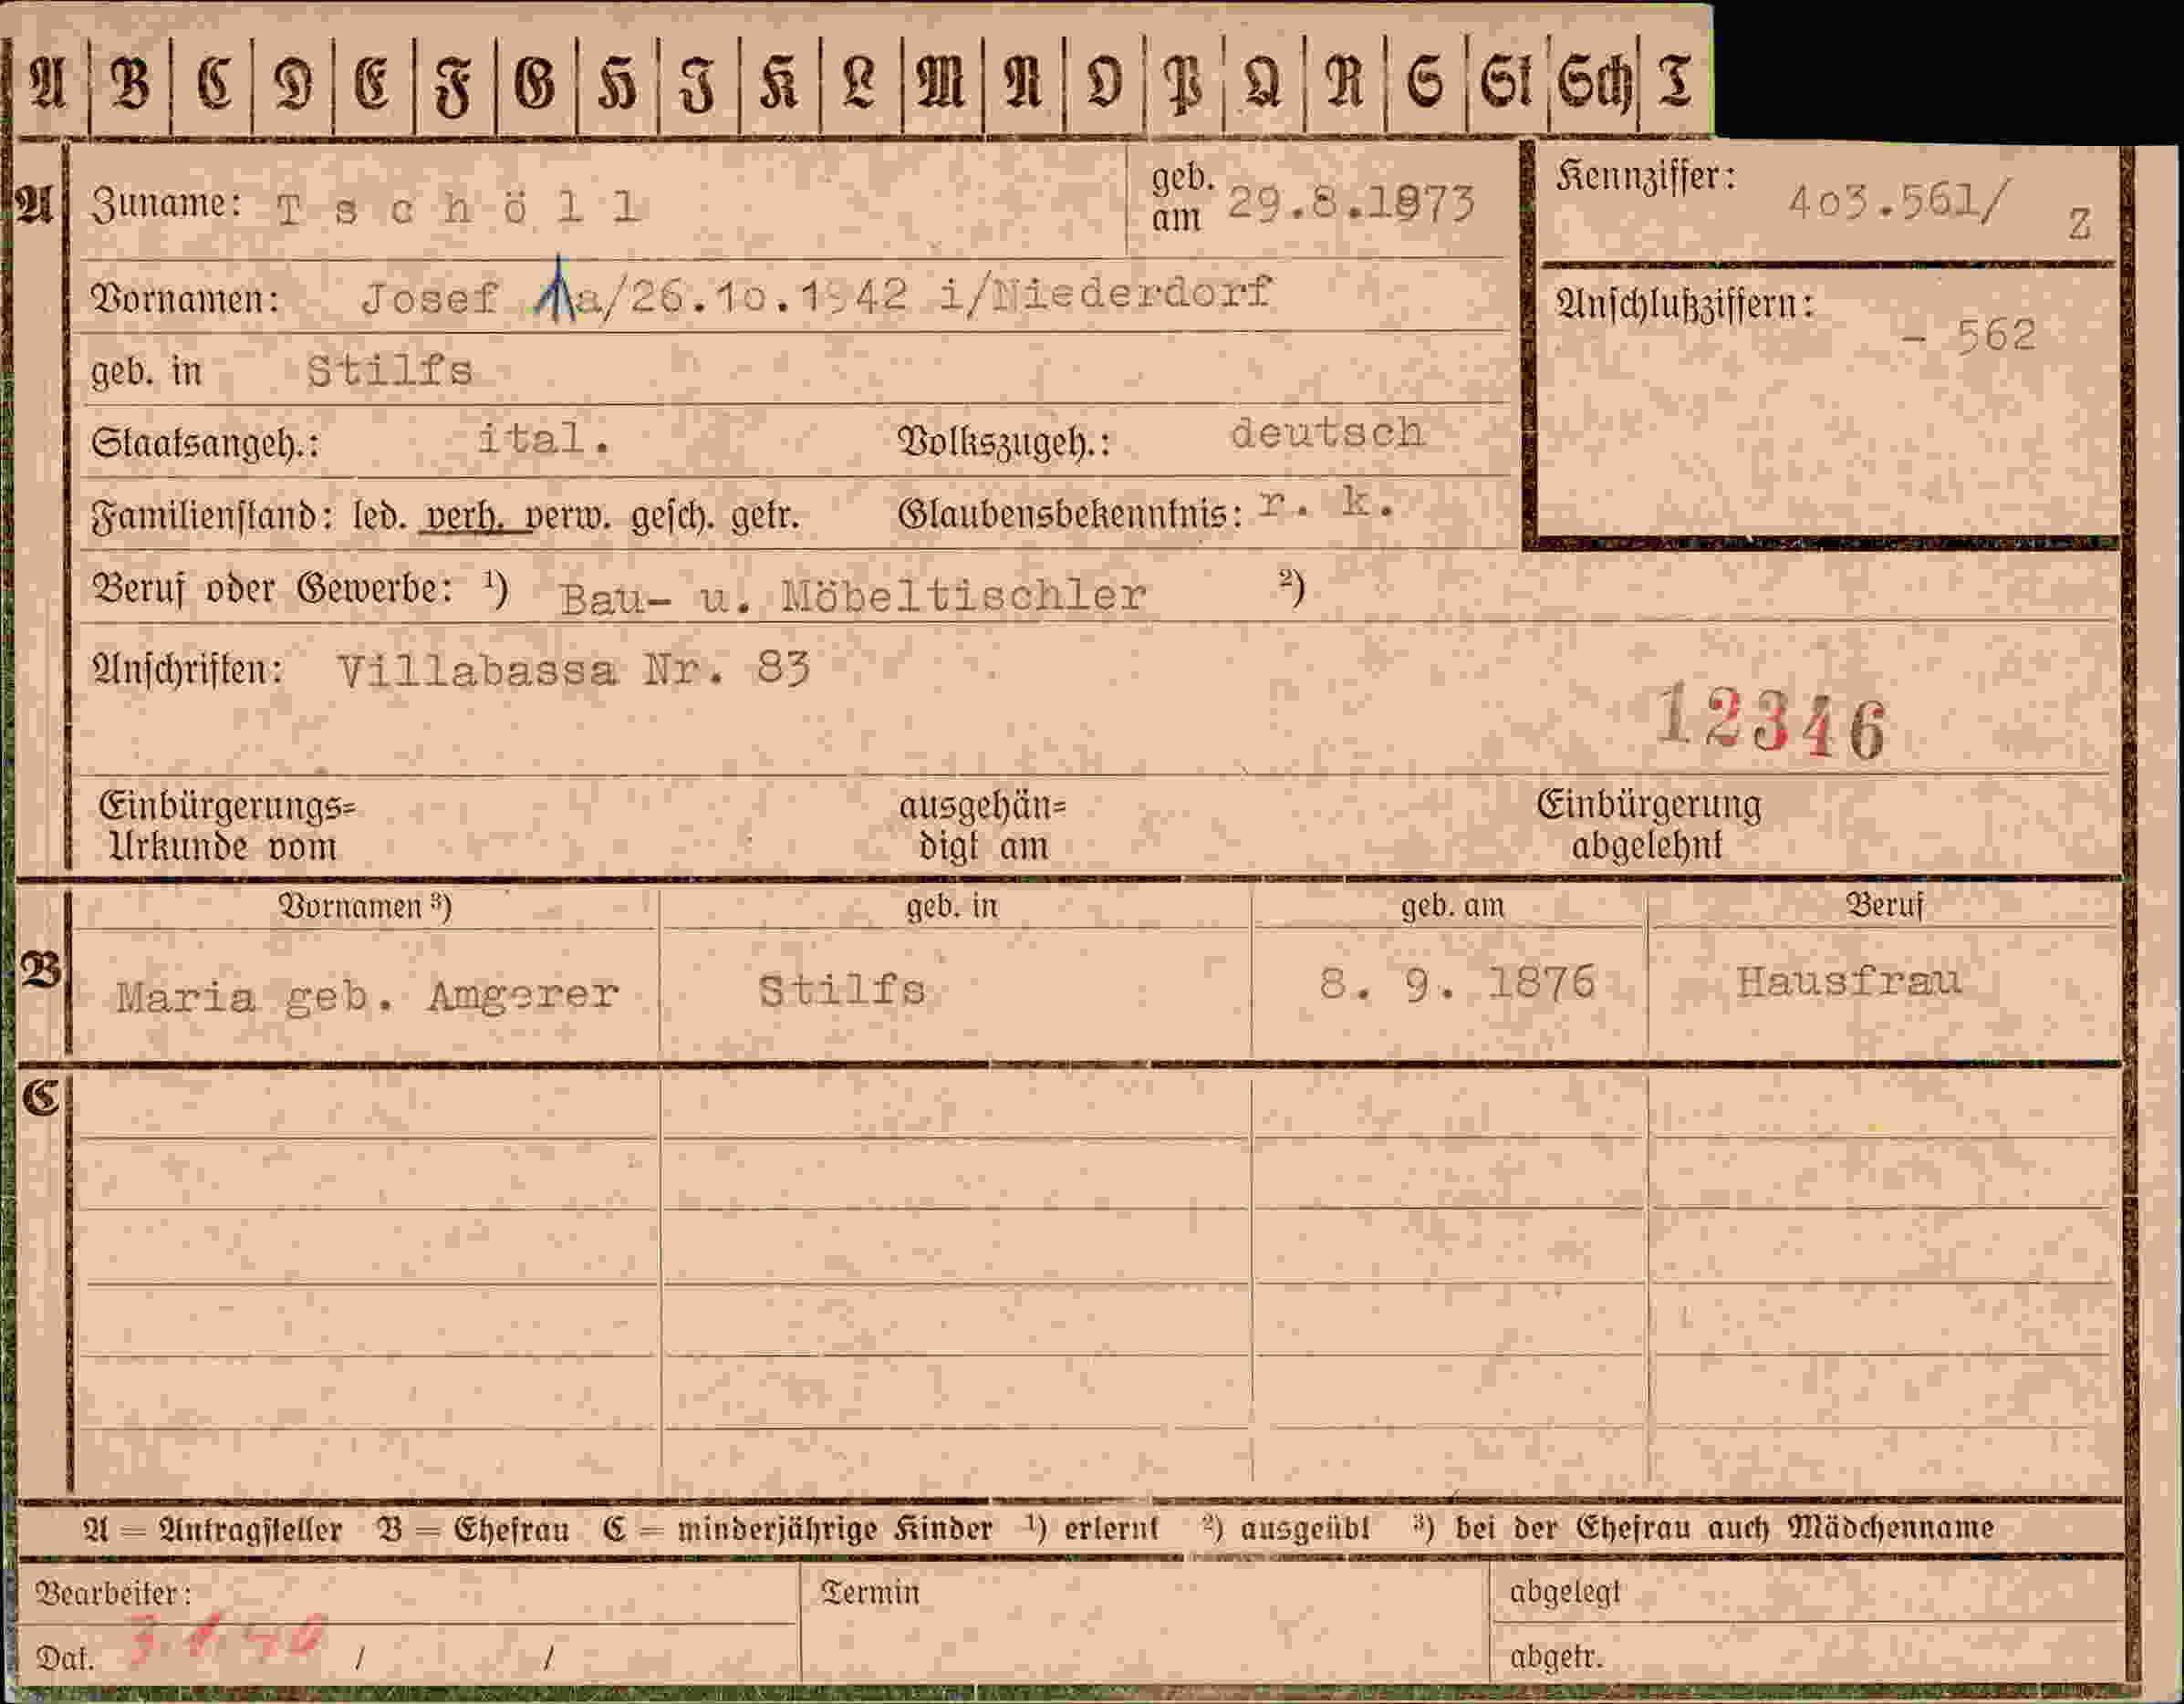 A B C D E F G H I K L M N O P Q R S St Sch T
A Zuname: Tschöll geb. am 29.8.1873 Kennziffer: 403.561/ Z
Vornamen: Josef a/26.10.1942 i/Niederdorf Anschlußziffern: - 562
geb. in Stilfs
Staatsangeh.: ital. Volkszugeh.: deutsch
Familienstand: led. verh. verw. gesch. getr. Glaubensbekenntnis: r. k.
Beruf oder Gewerbe: ¹) Bau- u. Möbeltischler ²)
Anschriften: Villabassa Nr. 83
12346
Einbürgerungs= ausgehän= Einbürgerung
Urkunde vom digt am abgelehnt
Vornamen ³) geb. in geb. am Beruf
B Maria geb. Amgerer Stilfs 8. 9. 1876 Hausfrau
C
A = Antragsteller B = Ehefrau C = minderjährige Kinder ¹) erlernt ²) ausgeübt ³) bei der Ehefrau auch Mädchenname
Bearbeiter: Termin abgelegt
Dat. / / abgetr.